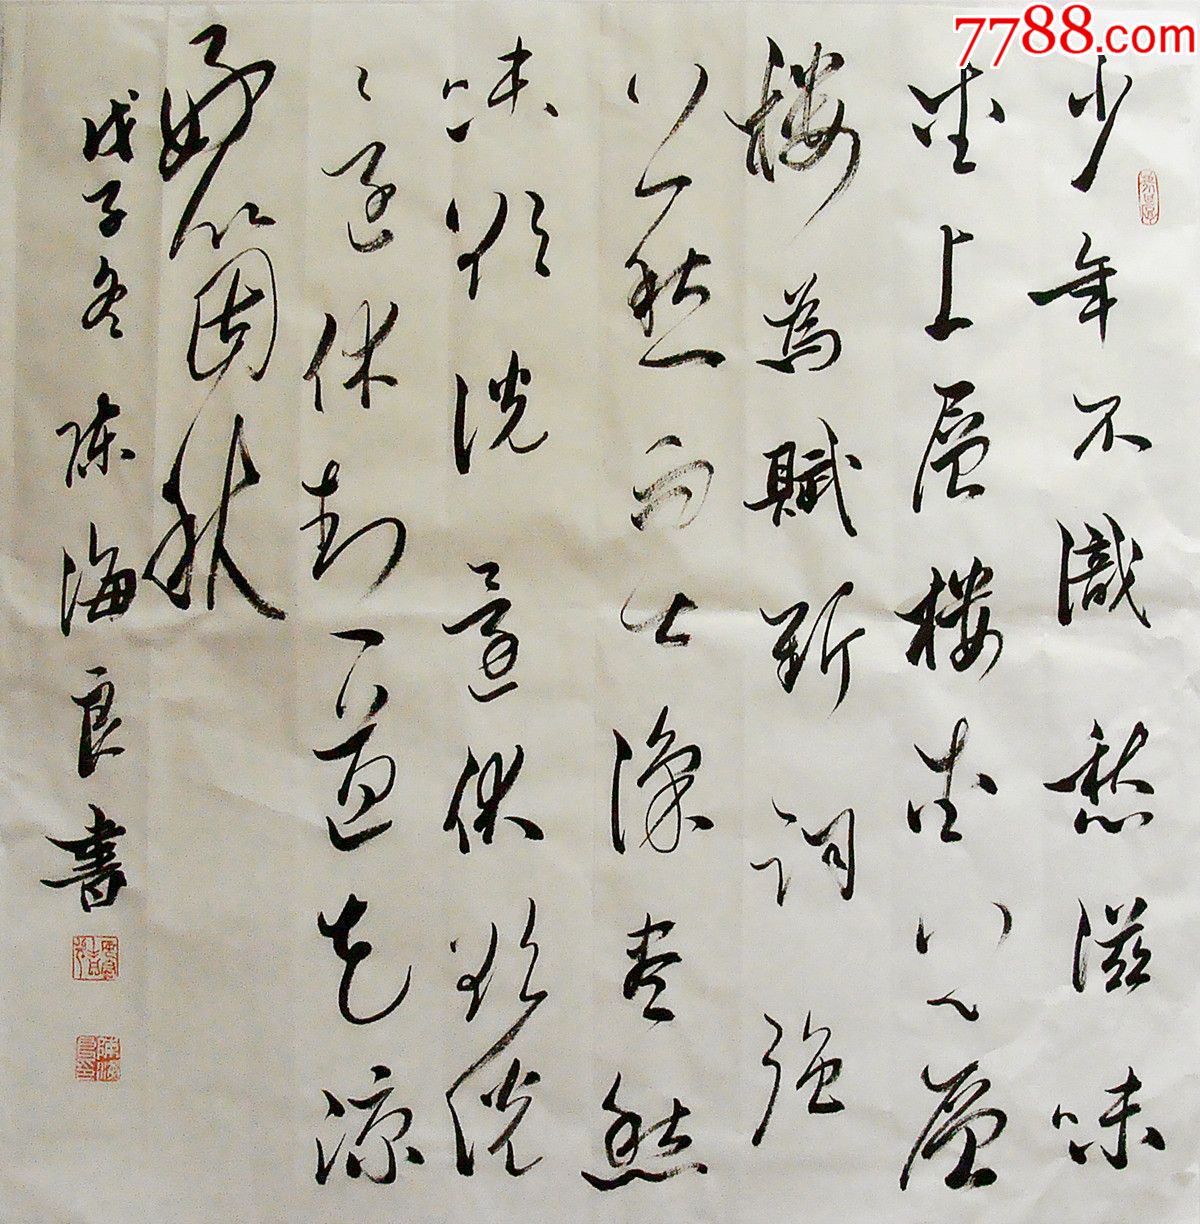 7788.com
少年不識愁滋味
愛上層樓愛上層
樓為賦新詞強
說愁而今識盡愁
味欲說還休欲說
還休却道天凉
好箇秋
戊子冬陳海良書